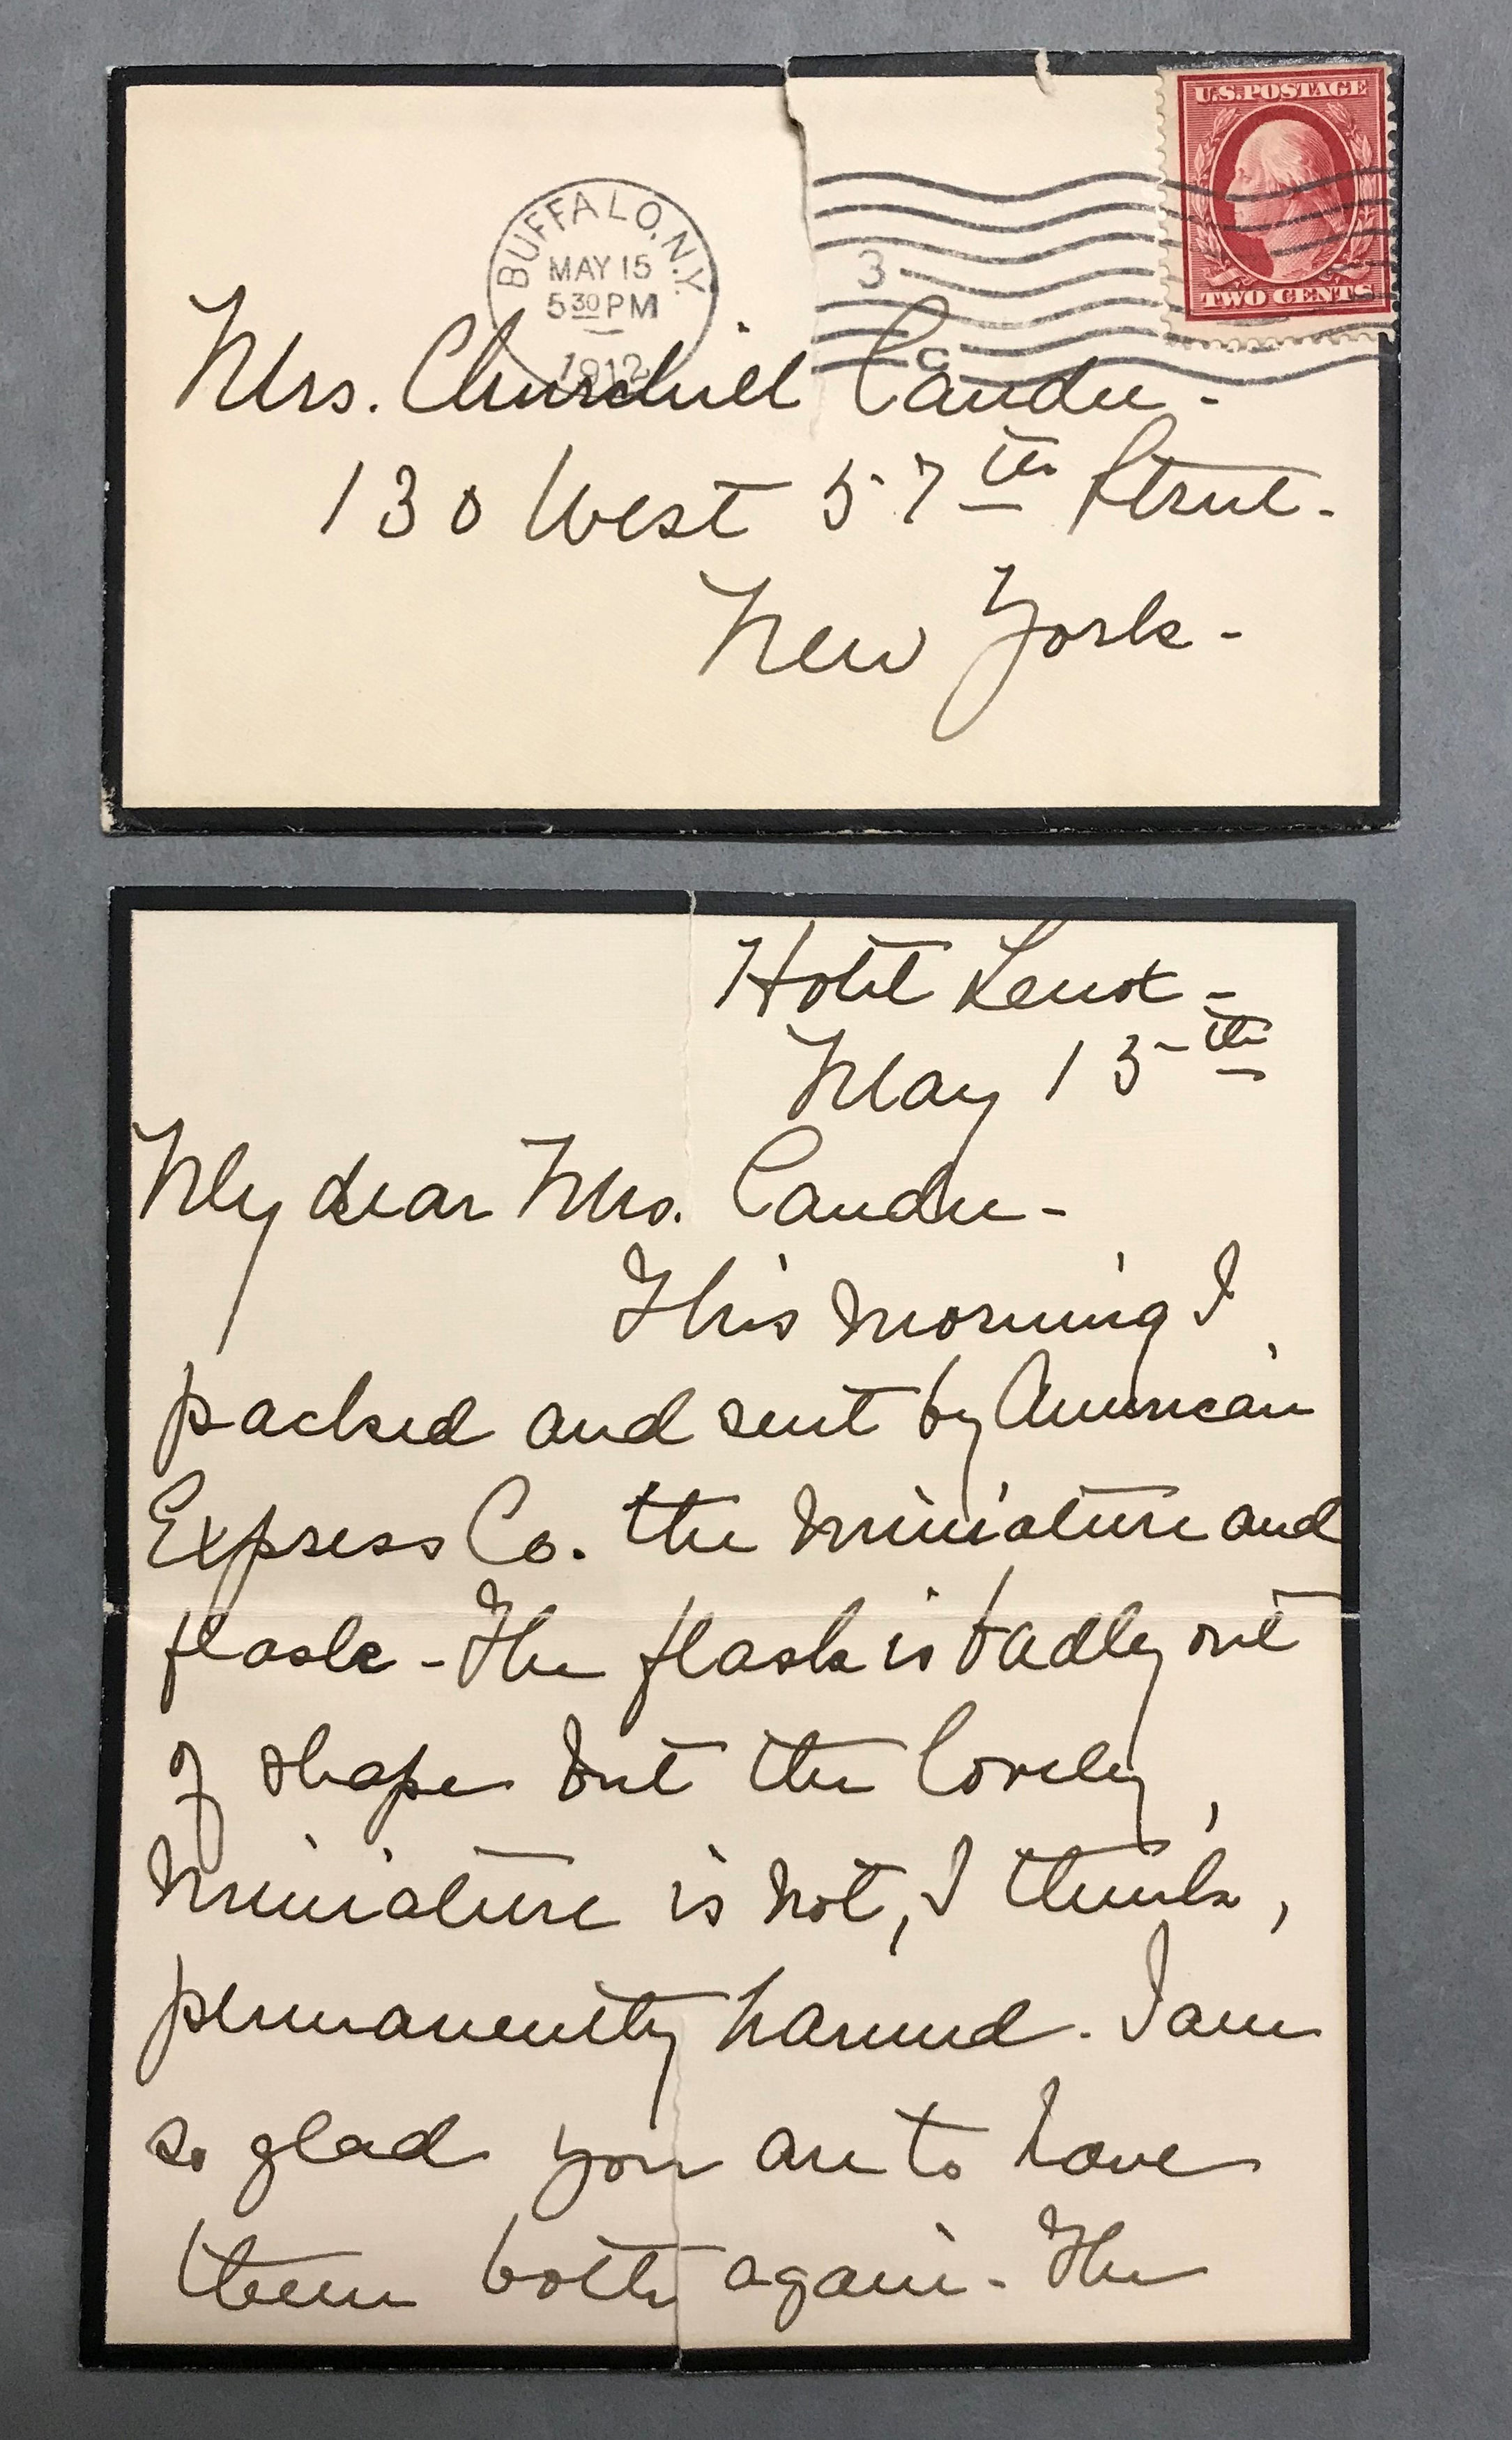 U.S. POSTAGE
TWO CENTS
BUFFALO, N.Y.
MAY 15
5 30 PM
1912
3
C
Mrs. Churchill Candee -
130 West 57th Street.
New York -
Hotel Lenox -
May 15th
My dear Mrs. Candee -
This morning I
packed and sent by American
Express Co. the miniature and
flask - The flask is badly out
of shape but the lovely
miniature is not, I think,
permanently harmed. I am
so glad you are to have
them both again - The